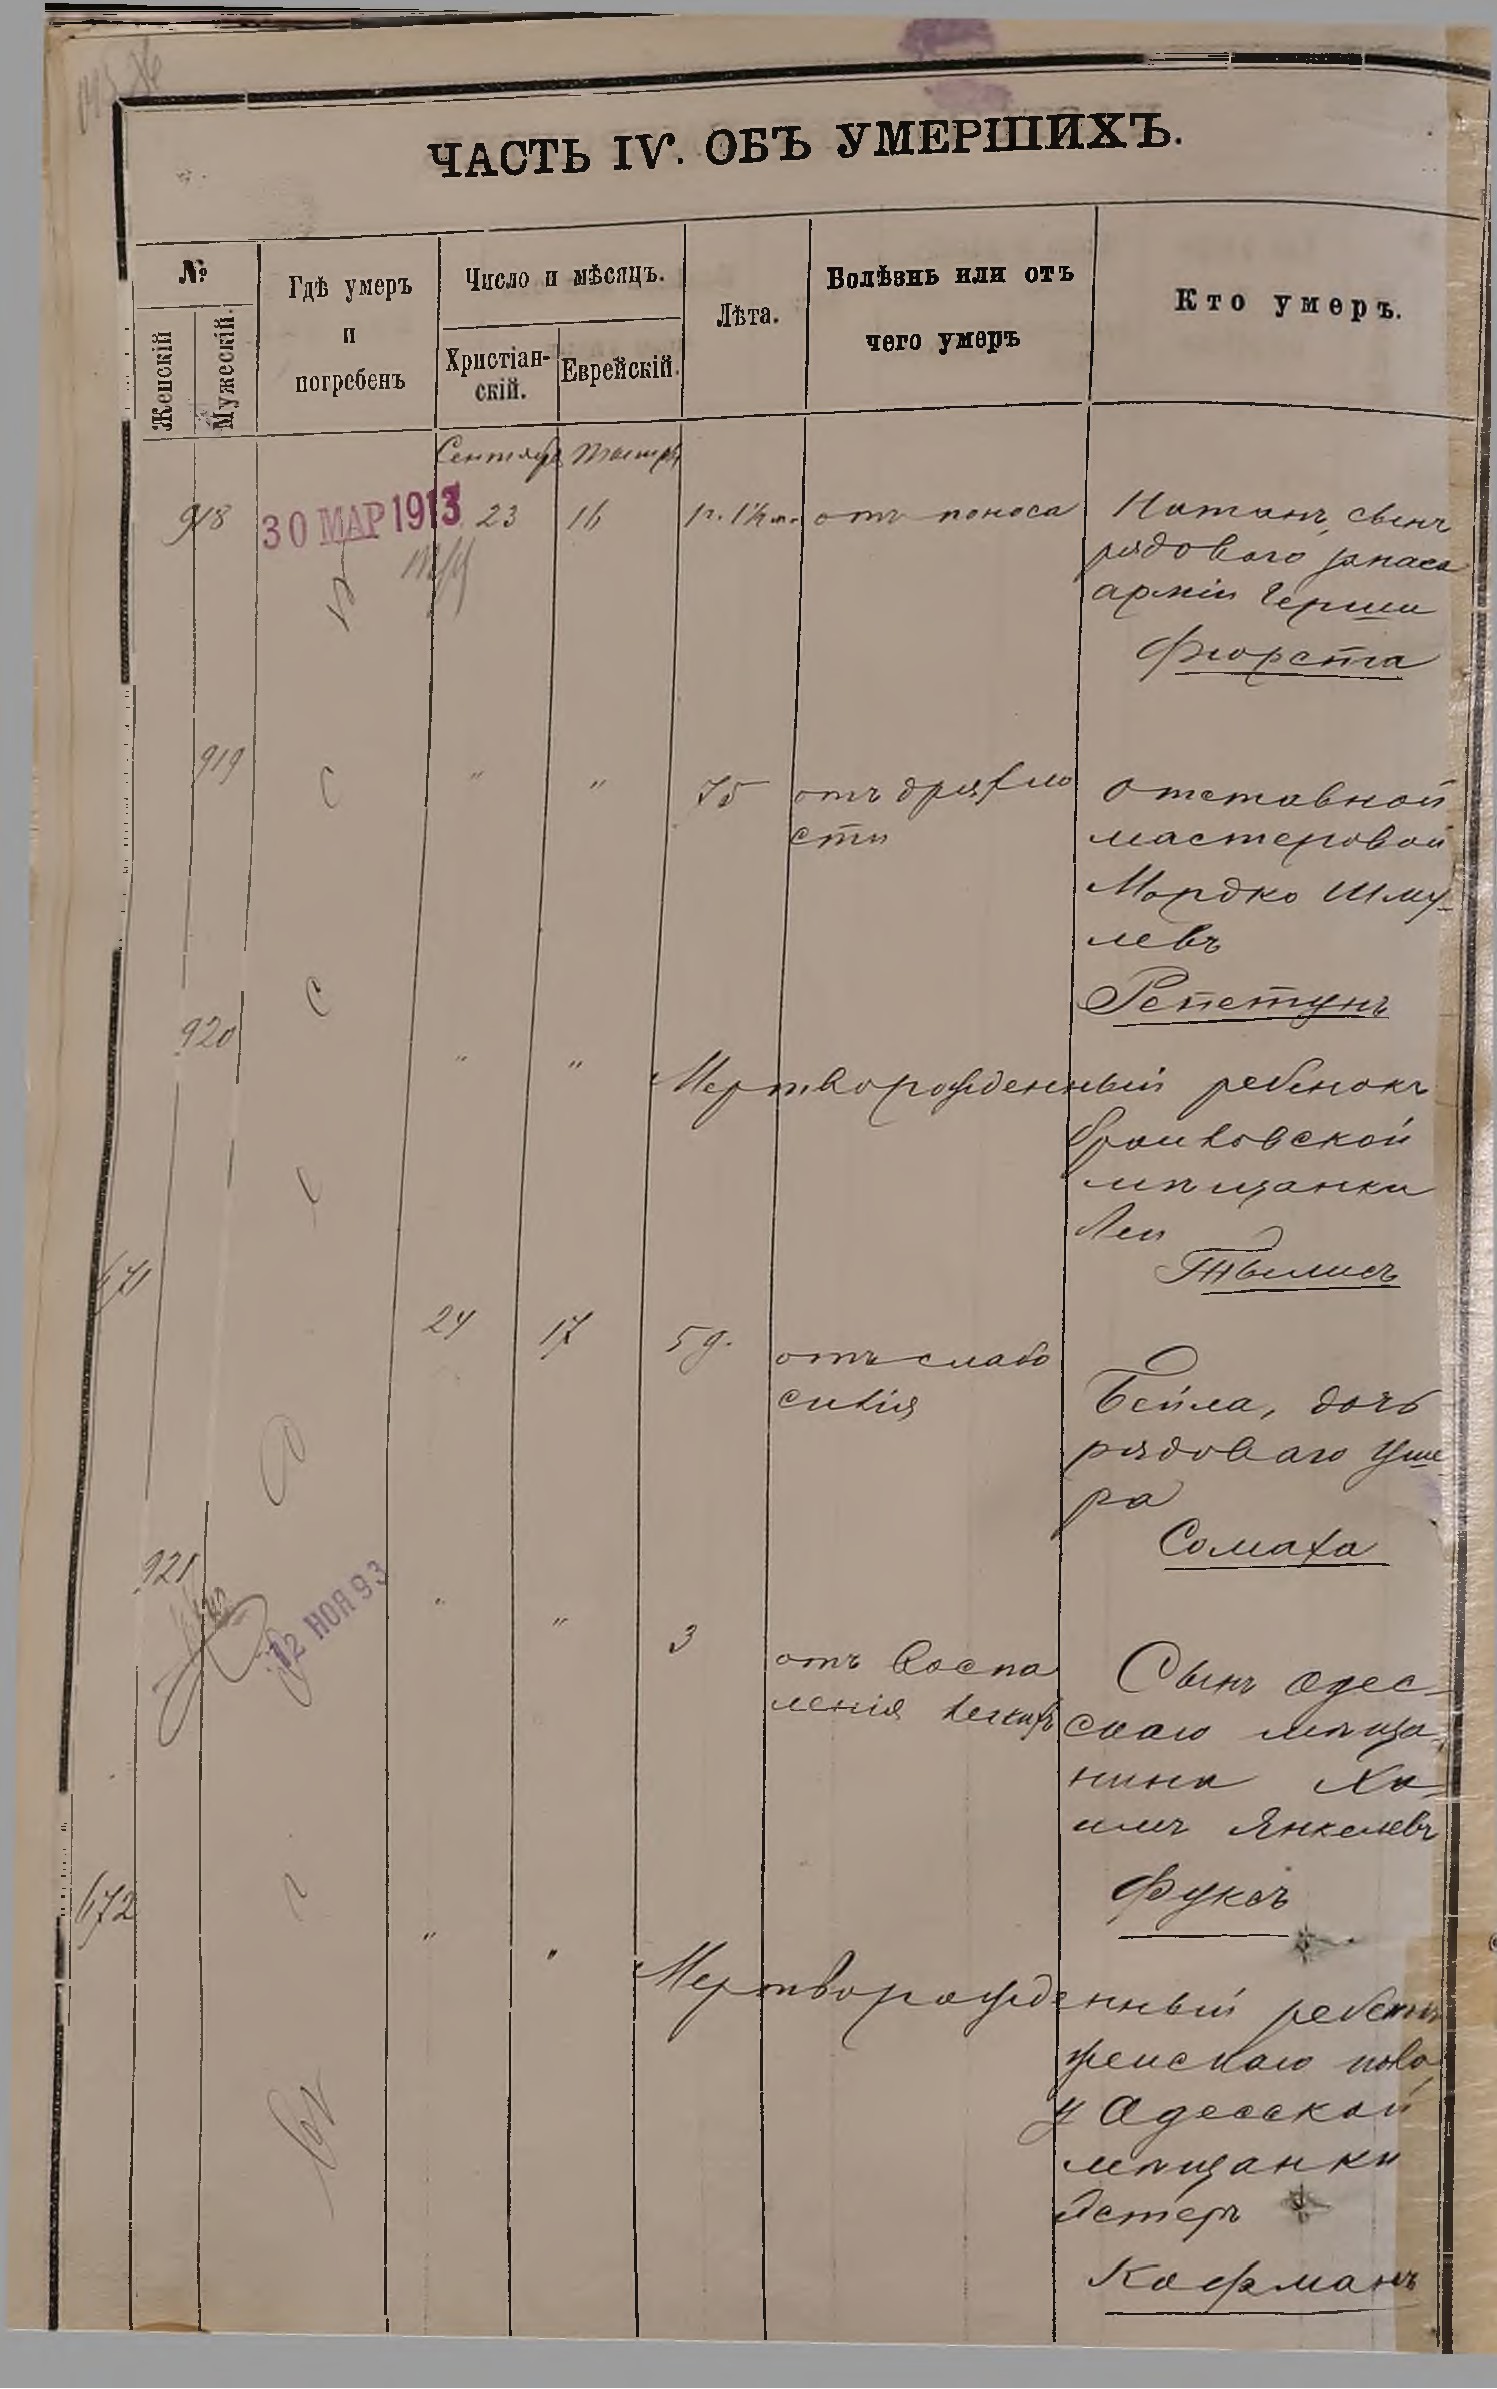 ЧАСТЬ IV. ОБЪ УМЕРШИХЪ.
№
Женскій
Мужескій.
Гдѣ умеръ
и
погребенъ
Число и мѣсяцъ.
Христіан-
скій.
Еврейскій.
Лѣта.
Болѣзнь или отъ
чего умеръ
Кто умеръ.
Сентябрь
918 30 МАР 1913 23 16 1 г. 1½ м. отъ поноса Натанъ, сынъ
рядового запаса
арміи Герши
Фюрста
919 С " " 75 отъ дряхло
сти
Отставной
мастеровой
Мордко Шму-
левъ
Репетунъ
920 С " " Мертворожденный ребенокъ
мѣщанки
Леи
671 24 17 5 д. отъ слабо
силія
Бейла, дочь
рядоваго Уше-
ра
Сомаха
921 12 НОЯ 93 " " 3 отъ воспа
ленія легкихъ
Сынъ Одес-
скаго мѣща-
нина Ха-
имъ Янкелевъ
Фуксъ
672 " " Мертворожденный ребенокъ
женскаго пола
у Одесской
мѣщанки
Эстеръ
Кофманъ